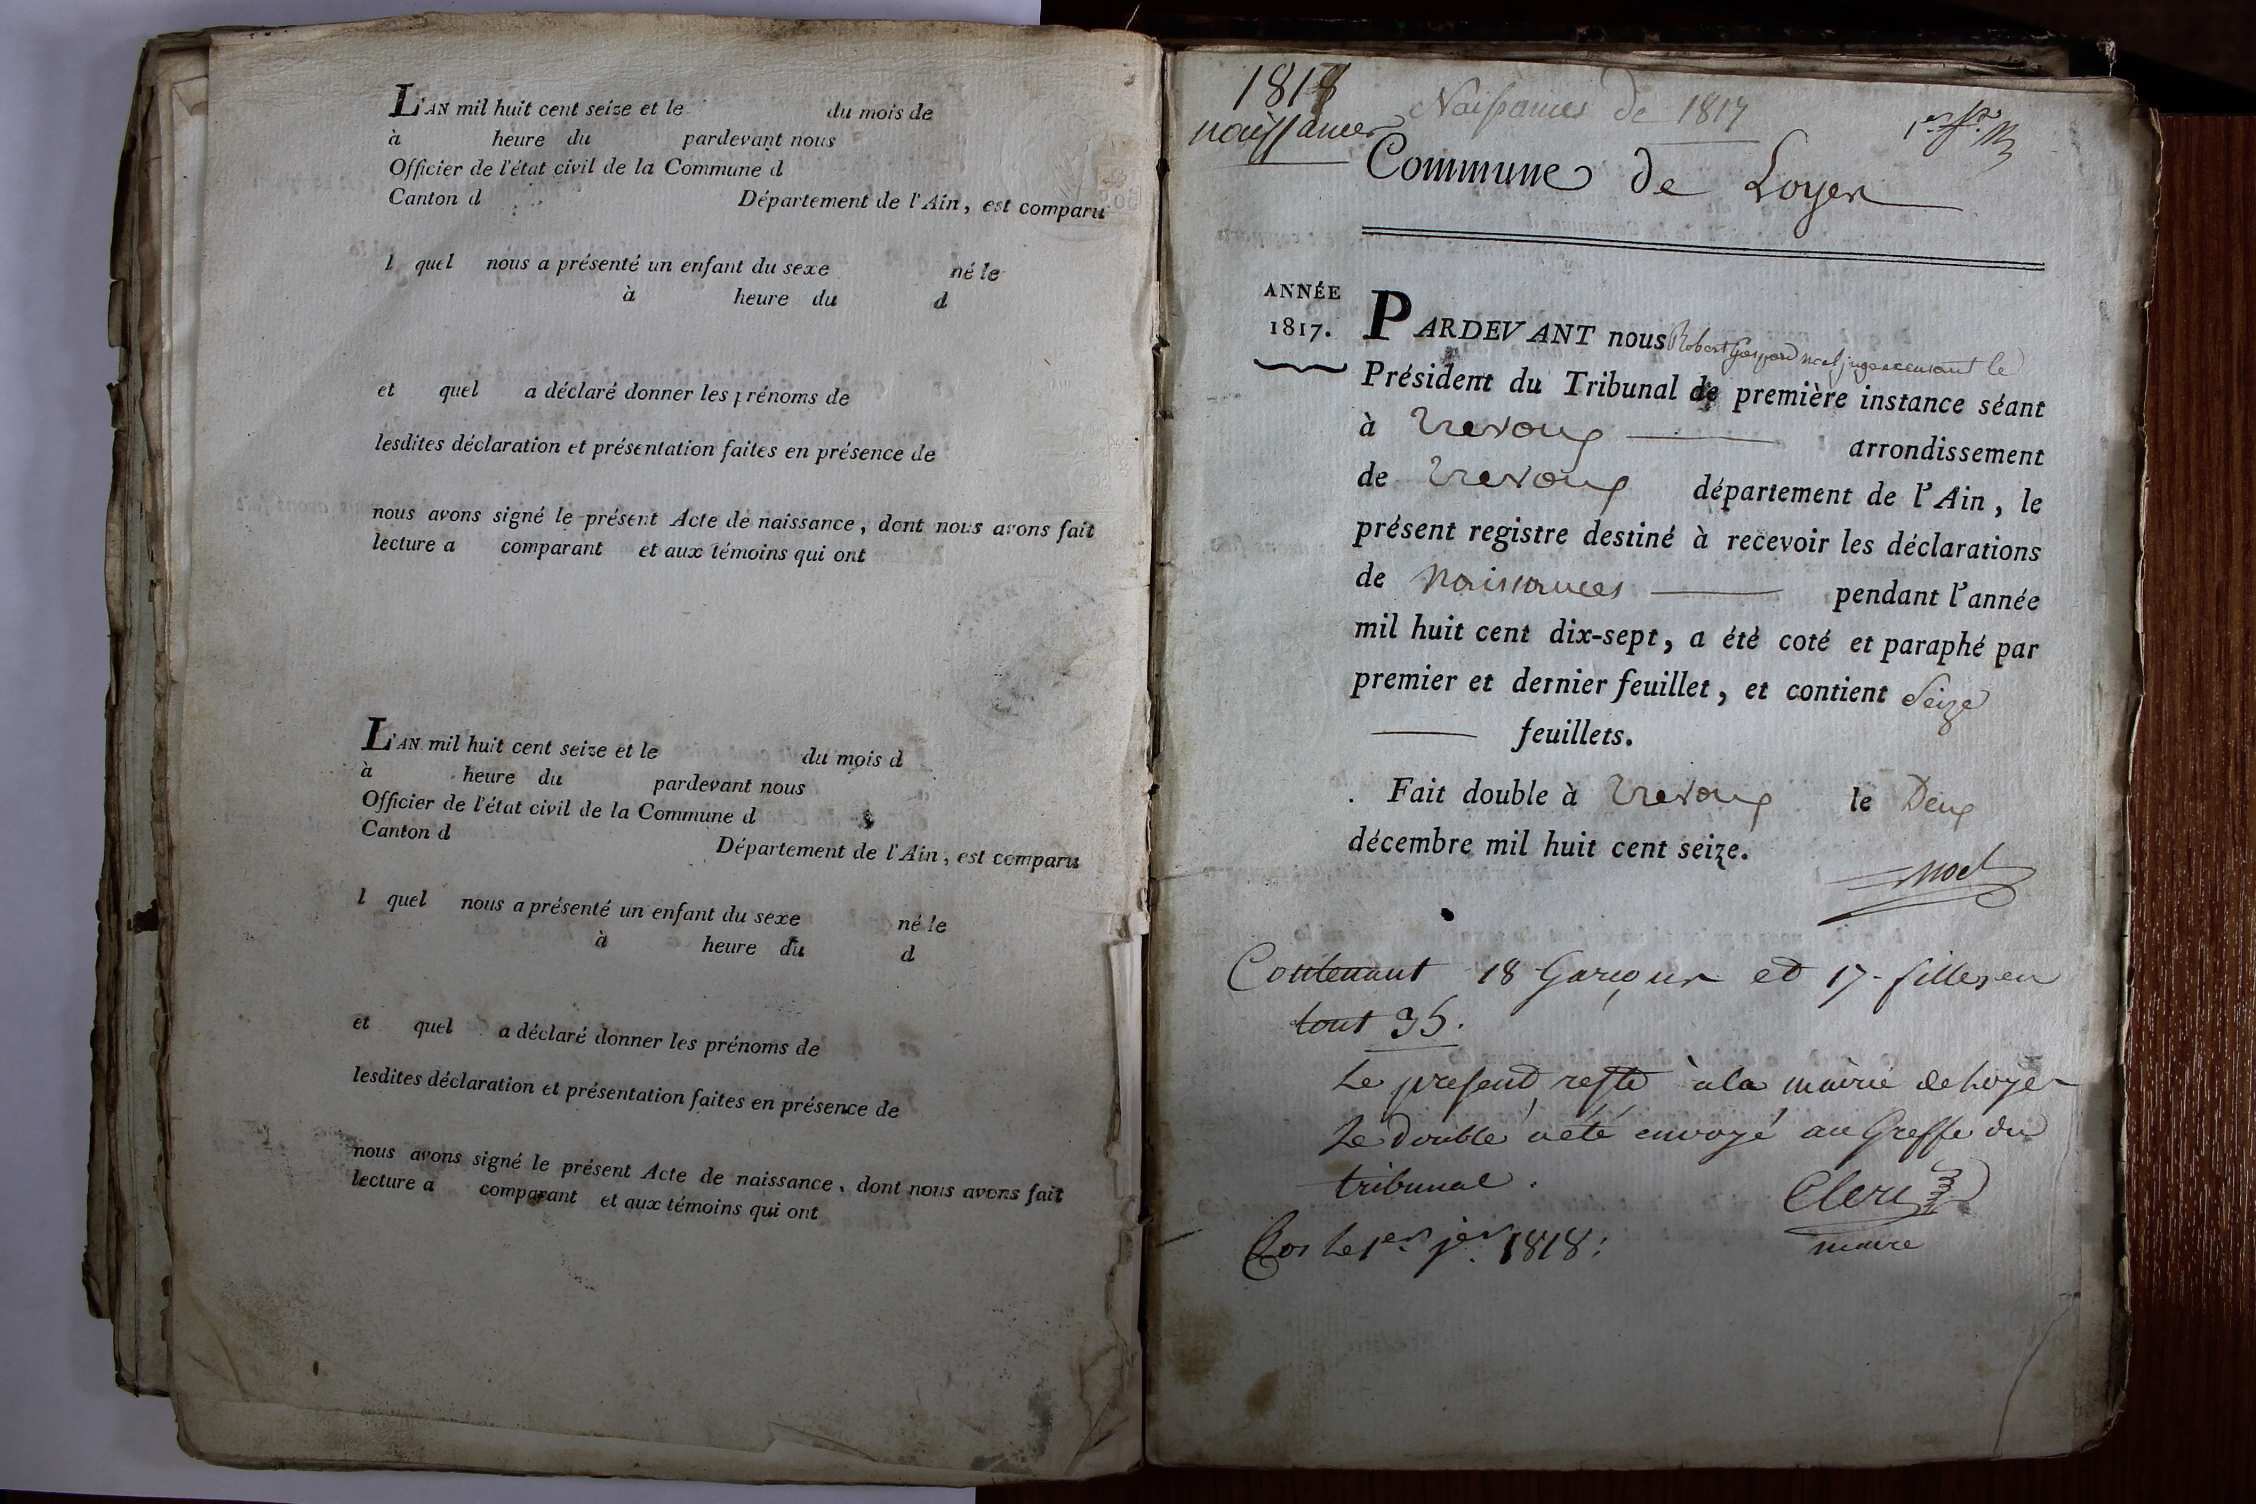 L'AN mil huit cent seize et le du mois de
à heure du pardevant nous
Officier de l'état civil de la Commune d
Canton d Département de l'Ain, est comparu
l quel nous a présenté un enfant du sexe né le
à heure du d
et quel a déclaré donner les prénoms de
lesdites déclaration et présentation faites en présence de
nous avons signé le présent Acte de naissance, dont nous avons fait
lecture a comparant et aux témoins qui ont
L'AN mil huit cent seize et le du mois d
à heure du pardevant nous
Officier de l'état civil de la Commune d
Canton d Département de l'Ain, est comparu
l quel nous a présenté un enfant du sexe né le
à heure du d
et quel a déclaré donner les prénoms de
lesdites déclaration et présentation faites en présence de
nous avons signé le présent Acte de naissance, dont nous avons fait
lecture a comparant et aux témoins qui ont
naissances Naissances de 1817
Commune de Loyer
ANNÉE
1817.
PARDEVANT nous Robert Gaspard noel juge le
Président du Tribunal de première instance séant
à Trevoux arrondissement
de Trevoux département de l'Ain, le
présent registre destiné à recevoir les déclarations
de Naissances pendant l'année
mil huit cent dix-sept, a été coté et paraphé par
premier et dernier feuillet, et contient Seize
feuillets.
Fait double à Trevoux le Deux
décembre mil huit cent seize.
Noel
Contenant 18 Garçons et 17 filles en
tout 35.
Le present reste à la mairie de Loyer
Le double a été envoyé au Greffe du
tribunal.
Clerc
maire
Clos le 1er jer 1818.